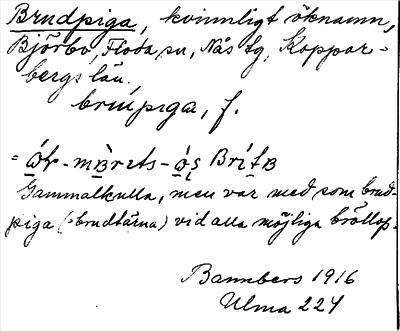 Brudpiga, kvinnligt öknamn,
Björbo, Floda sn, Nås tg, Koppar-
bergs län.
brúpiga, f.
Gammalkulla, men var med som brud-
piga (= brudtärna) vid alla möjliga bröllop.
Bannbers 1916
Ulma 224